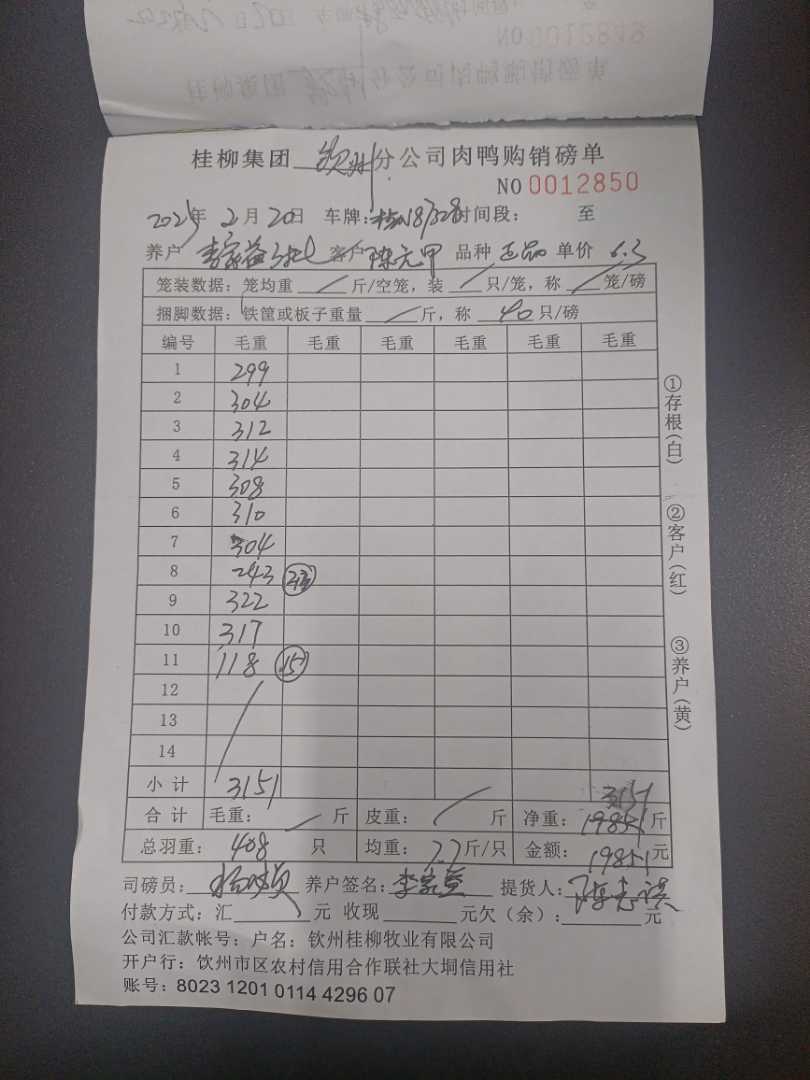 桂柳集团 钦州 分公司肉鸭购销磅单
NO 0012850
2025年 2月 20日 车牌: 时间段: 至
养户 客户 陈元甲 品种 正品 单价 6.3
笼装数据: 笼均重 / 斤/空笼，装 / 只/笼，称 / 笼/磅
捆脚数据: 铁筐或板子重量 / 斤，称 40 只/磅
编号 毛重 毛重 毛重 毛重 毛重 毛重
1 299
2 304
3 312
4 314
5 308
6 310
7 304
8 243
9 322
10 317
11 118 15
12
13
14
小计 3151 3151
合计 毛重: / 斤 皮重: / 斤 净重: 19851 斤
总羽重: 408 只 均重: 7.7 斤/只 金额: 19851 元
司磅员: 养户签名: 提货人:
付款方式: 汇 元 收现 元欠（余）: 元
公司汇款帐号: 户名: 钦州桂柳牧业有限公司
开户行: 钦州市区农村信用合作联社大垌信用社
账号: 8023 1201 0114 4296 07
①存根(白)
②客户(红)
③养户(黄)